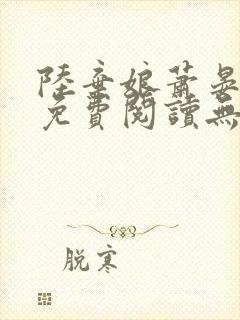 陸棄娘蕭晏
免費閱讀無
脱寒